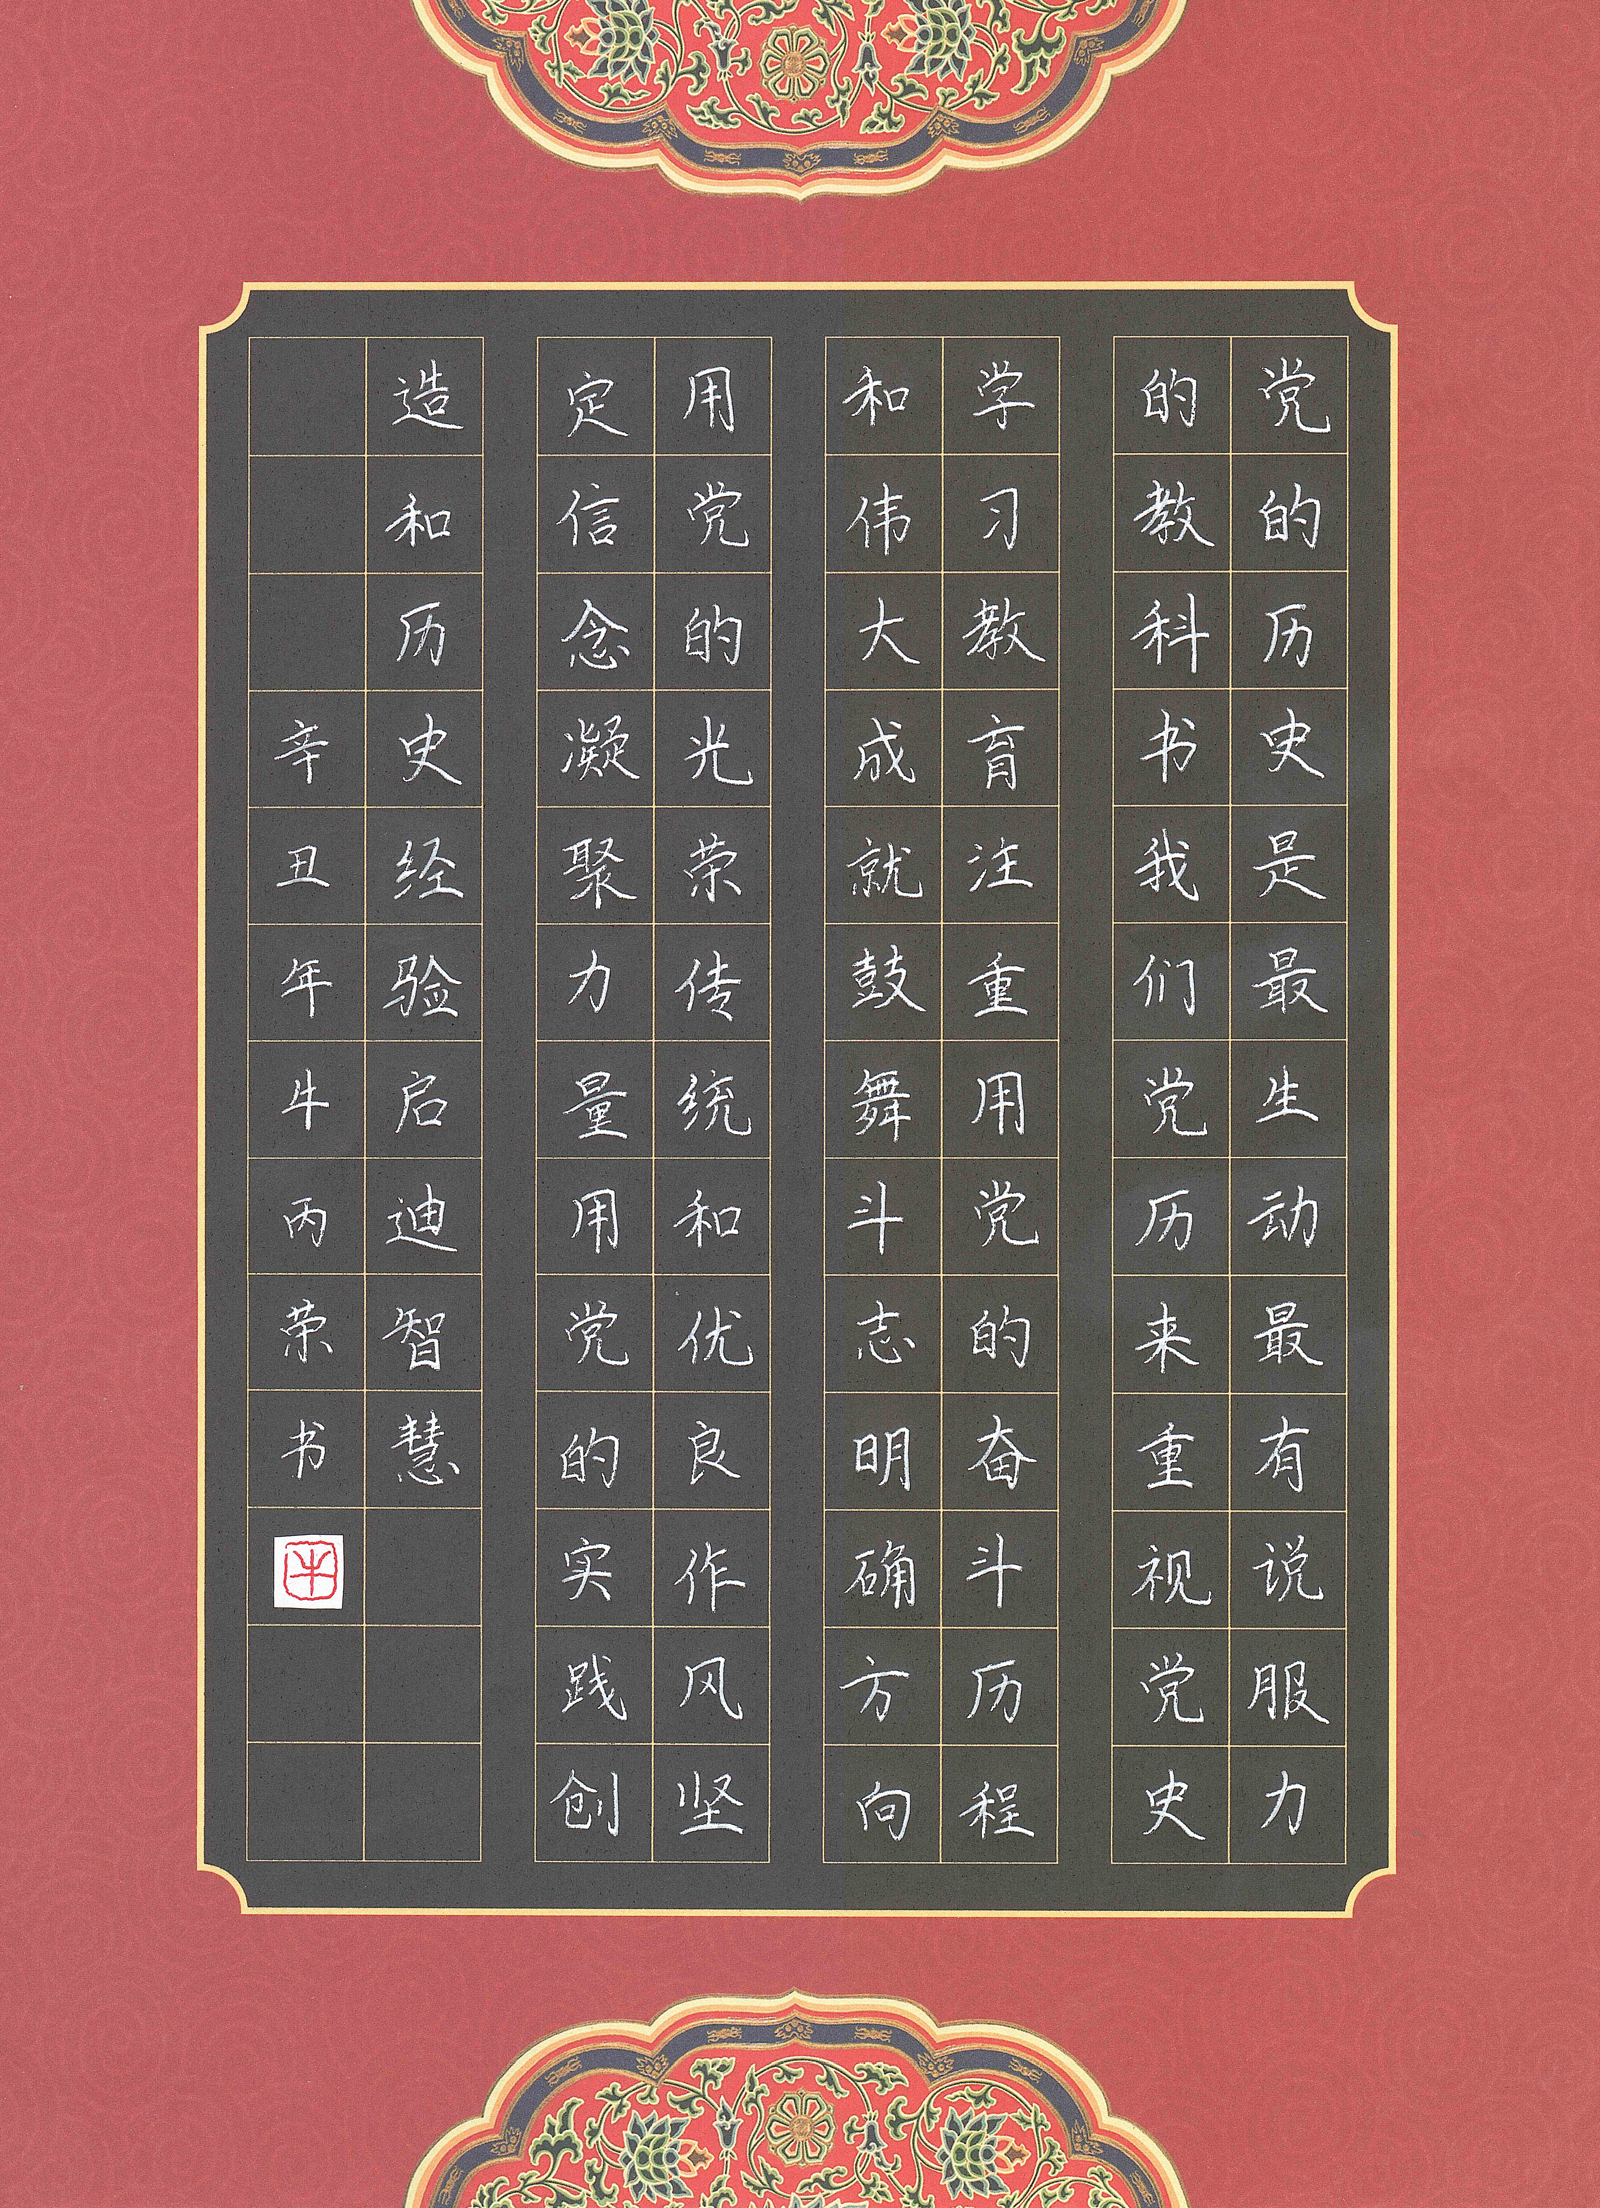 党的历史是最生动最有说服力
的教科书我们党历来重视党史
学习教育注重用党的奋斗历程
和伟大成就鼓舞斗志明确方向
用党的光荣传统和优良作风坚
定信念凝聚力量用党的实践创
造和历史经验启迪智慧
辛丑年牛丙荣书
牛